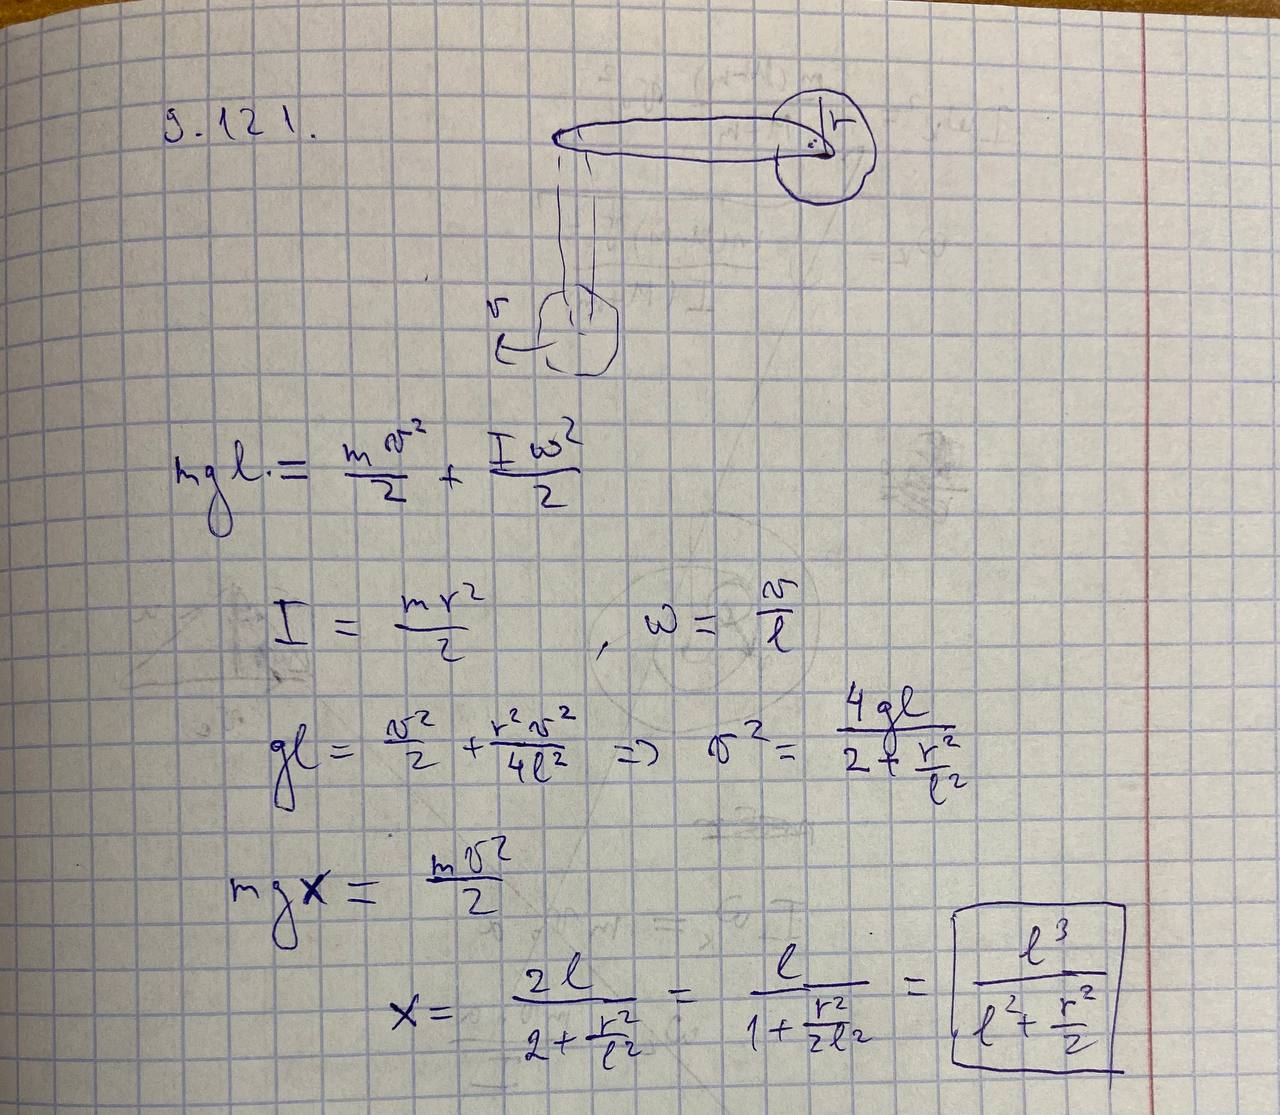 9.121.
r
v
mgl. = mv²/2 + Iω²/2
I = mr²/2 , ω = v/l
gl = v²/2 + r²v²/4l² => v² = 4gl/(2 + r²/l²)
mgx = mv²/2
x = 2l/(2 + r²/l²) = l/(1 + r²/2l²) = l³/(l² + r²/2)